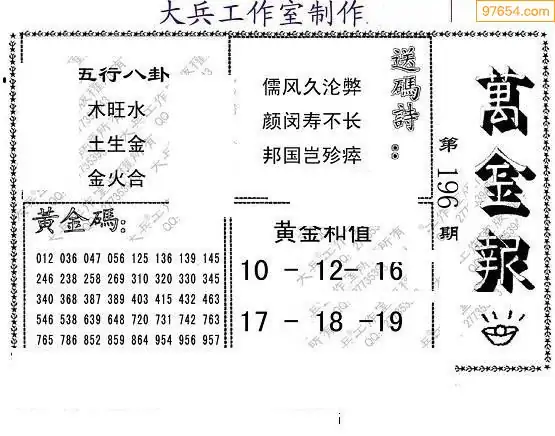 大兵工作室制作
97654.com
五行八卦
木旺水
土生金
金火合
儒风久沦弊
颜闵寿不长
邦国岂殄瘁
送碼詩：
萬金報
第196期
黃金碼:
012 036 047 056 125 136 139 145
246 238 258 269 310 320 330 345
340 368 387 389 403 415 432 463
546 538 639 648 720 731 742 763
765 786 852 859 864 954 956 957
黄金和值
10 - 12- 16
17 - 18 -19